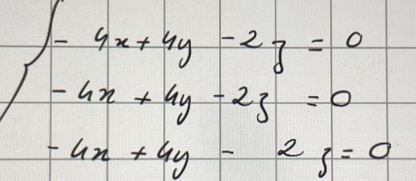 - 4x + 4y - 2z = 0
- 4x + 4y - 2z = 0
- 4x + 4y - 2z = 0